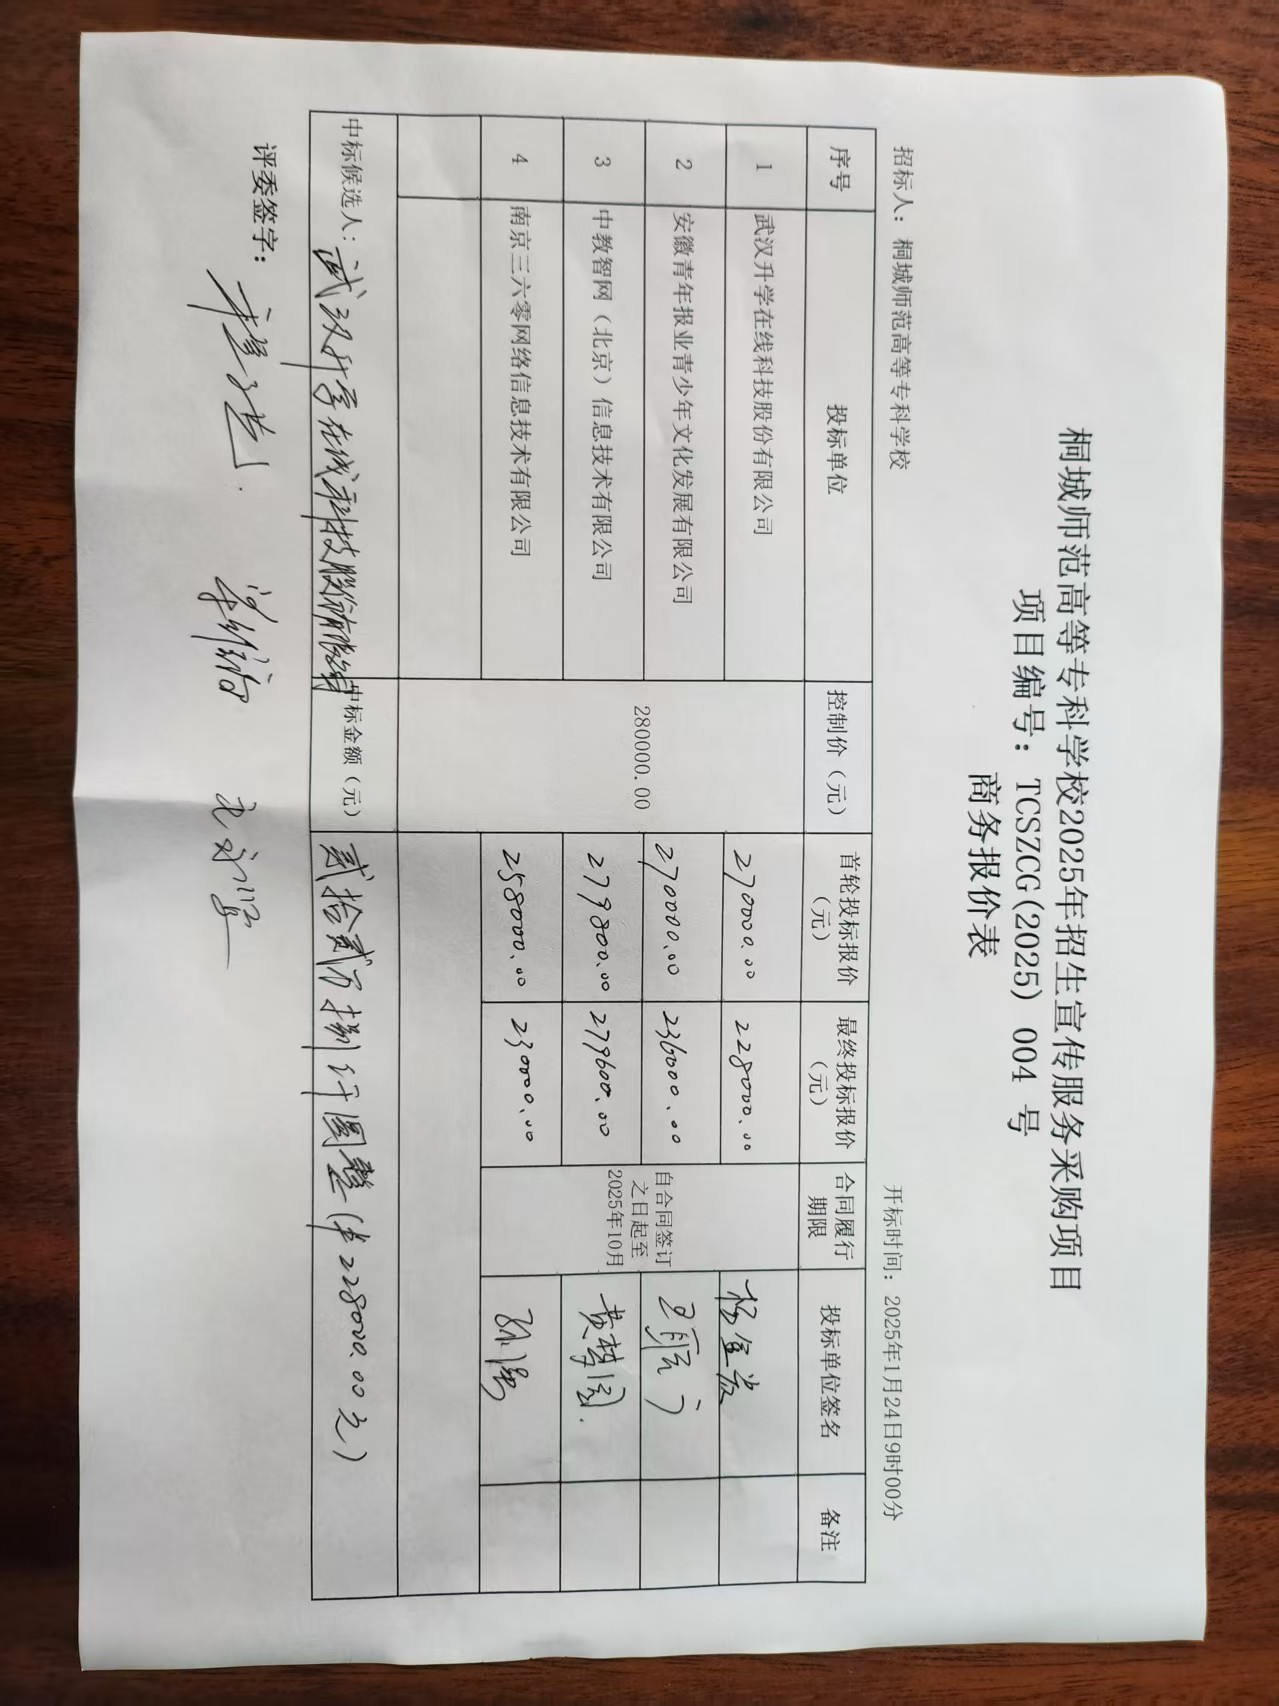 桐城师范高等专科学校2025年招生宣传服务采购项目
项目编号：TCSZCG(2025) 004 号
商务报价表
招标人：桐城师范高等专科学校 开标时间：2025年1月24日9时00分
序号 投标单位 控制价（元） 首轮投标报价（元） 最终投标报价（元） 合同履行期限 投标单位签名 备注
1 武汉升学在线科技股份有限公司 280000.00 270000.00 228000.00 自合同签订之日起至2025年10月
2 安徽青年报业青少年文化发展有限公司 270000.00 236000.00
3 中教智网（北京）信息技术有限公司 279800.00 279600.00 黄梦园.
4 南京三六零网络信息技术有限公司 258000.00 230000.00
中标候选人：武汉升学在线科技股份有限公司 中标金额（元） 贰拾贰万捌仟圆整(¥228000.00元)
评委签字：